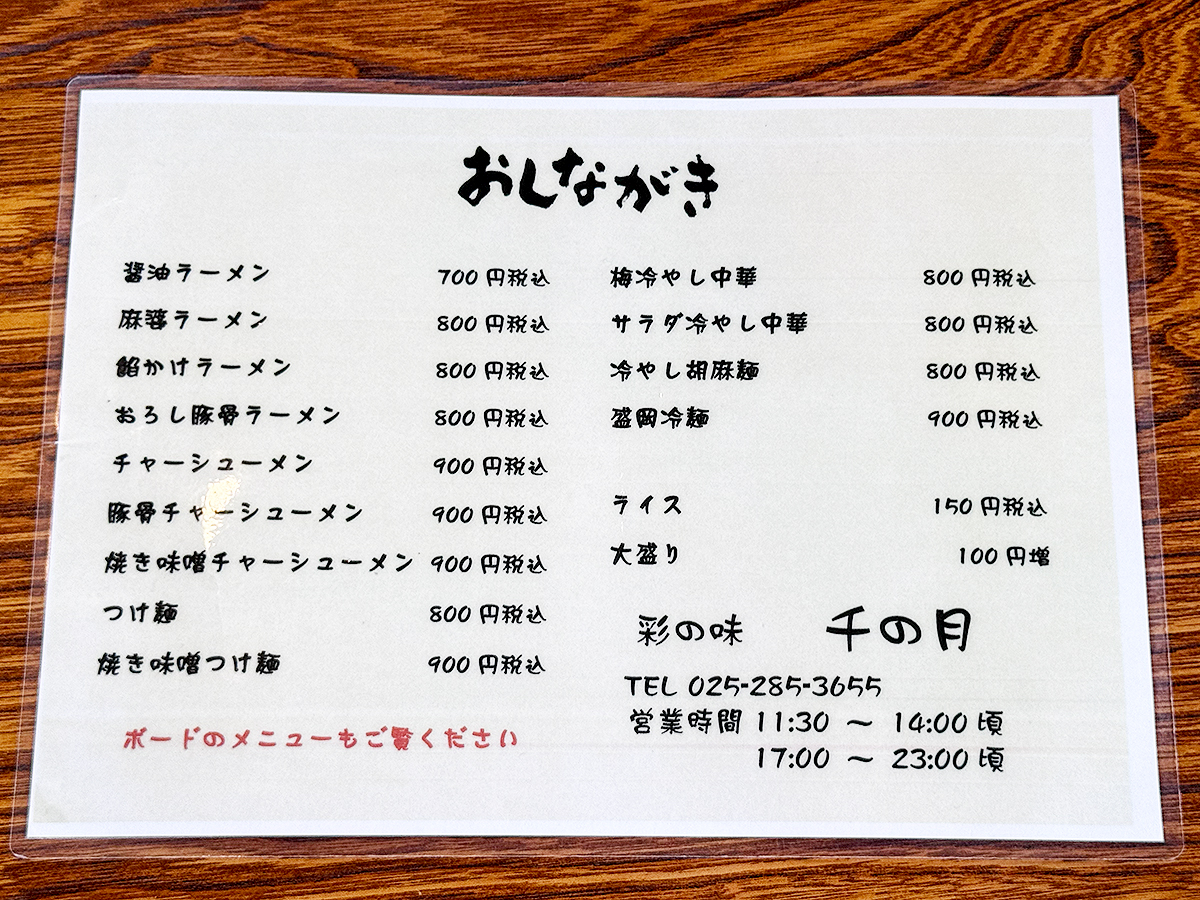 おしながき
醤油ラーメン 700円税込
麻婆ラーメン 800円税込
餡かけラーメン 800円税込
おろし豚骨ラーメン 800円税込
チャーシューメン 900円税込
豚骨チャーシューメン 900円税込
焼き味噌チャーシューメン 900円税込
つけ麺 800円税込
焼き味噌つけ麺 900円税込
ボードのメニューもご覧ください
梅冷やし中華 800円税込
サラダ冷やし中華 800円税込
冷やし胡麻麺 800円税込
盛岡冷麺 900円税込
ライス 150円税込
大盛り 100円増
彩の味 千の月
TEL 025-285-3655
営業時間 11:30 ～ 14:00頃
17:00 ～ 23:00頃